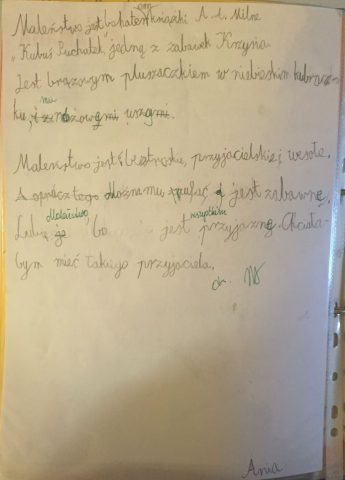 Maleństwo jest bohaterem książki A. A. Milne
"Kubuś Puchatek", jedną z zabawek Krzysia.
Jest brązowym pluszaczkiem w niebieskim kubracz-
ku, z różowymi uszami.
Maleństwo jest beztroskie, przyjacielskie i wesołe.
A oprócz tego można mu zaufać i jest zabawne.
Maleństwo wszystkim
Lubię je bo jest przyjazne. Chciała-
bym mieć takiego przyjaciela.
Ania